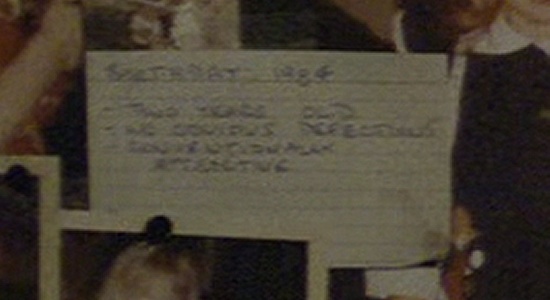 BIRTHDAY 1984
- TWO YEARS OLD
- NO OBVIOUS DEFECTIONS
- CONVENTIONALLY
ATTRACTIVE